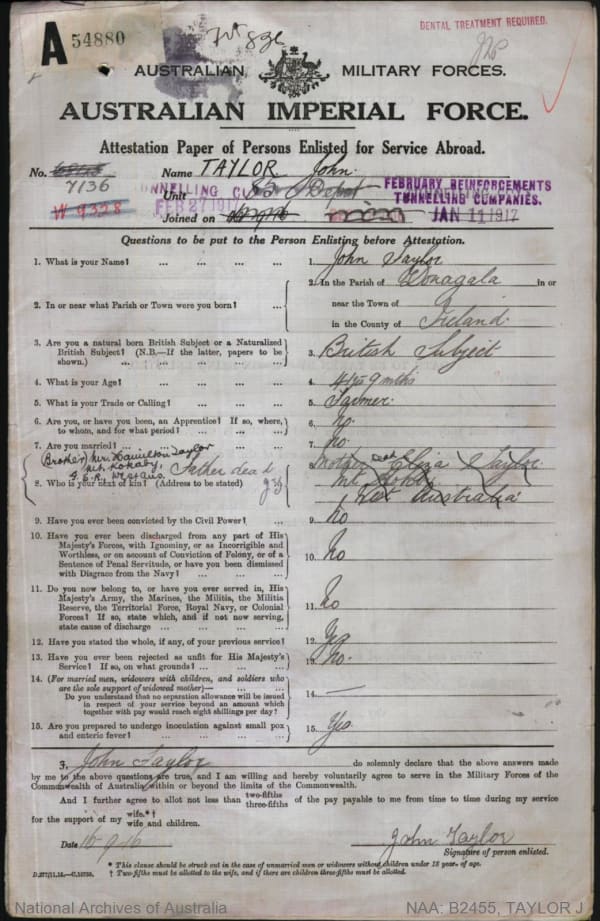 A 54880
DENTAL TREATMENT REQUIRED.
AUSTRALIAN MILITARY FORCES.
AUSTRALIAN IMPERIAL FORCE.
Attestation Paper of Persons Enlisted for Service Abroad.
No. 7136 Name TAYLOR John
W 9328
Unit TUNNELLING Depot
FEBRUARY REINFORCEMENTS
TUNNELLING COMPANIES.
Joined on FEB 27 1917 JAN 11 1917
Questions to be put to the Person Enlisting before Attestation.
1. What is your Name? ... ... ... ... 1. John Taylor
2. In or near what Parish or Town were you born? ... 2. In the Parish of in or
near the Town of
in the County of Ireland
3. Are you a natural born British Subject or a Naturalized
British Subject? (N.B.—If the latter, papers to be
shown.) ... ... ... ... 3. British Subject
4. What is your Age? ... ... ... ... 4. 41 yrs 9 mths
5. What is your Trade or Calling? ... ... ... 5. Farmer
6. Are you, or have you been, an Apprentice? If so, where,
to whom, and for what period? ... ... ... 6. no
7. Are you married? ... ... ... ... 7. no
Brother) Mr. Hamilton Taylor
Mt. Kokeby,
G.S.R., West Aus.
Father dead
8. Who is your next of kin? (Address to be stated) 8. Mother dead Eliza Taylor
Mt. Kokeby
West Australia
9. Have you ever been convicted by the Civil Power? ... 9. no
10. Have you ever been discharged from any part of His
Majesty's Forces, with Ignominy, or as Incorrigible and
Worthless, or on account of Conviction of Felony, or of a
Sentence of Penal Servitude, or have you been dismissed
with Disgrace from the Navy? ... ... ... 10. no
11. Do you now belong to, or have you ever served in, His
Majesty's Army, the Marines, the Militia, the Militia
Reserve, the Territorial Force, Royal Navy, or Colonial
Forces? If so, state which, and if not now serving,
state cause of discharge ... ... ... 11. no
12. Have you stated the whole, if any, of your previous service? 12. Yes
13. Have you ever been rejected as unfit for His Majesty's
Service? If so, on what grounds? ... ... 13. no.
14. (For married men, widowers with children, and soldiers who
are the sole support of widowed mother)—
Do you understand that no separation allowance will be issued
in respect of your service beyond an amount which
together with pay would reach eight shillings per day? 14. —
15. Are you prepared to undergo inoculation against small pox
and enteric fever? ... ... ... ... 15. Yes
I, John Taylor do solemnly declare that the above answers made
by me to the above questions are true, and I am willing and hereby voluntarily agree to serve in the Military Forces of the
Commonwealth of Australia within or beyond the limits of the Commonwealth.
And I further agree to allot not less than two-fifths three-fifths of the pay payable to me from time to time during my service
for the support of my wife.* † wife and children.
Date 16.9.16 John Taylor
Signature of person enlisted.
* This clause should be struck out in the case of unmarried men or widowers without children under 18 years of age.
† Two-fifths must be allotted to the wife, and if there are children three-fifths must be allotted.
National Archives of Australia NAA: B2455, TAYLOR J